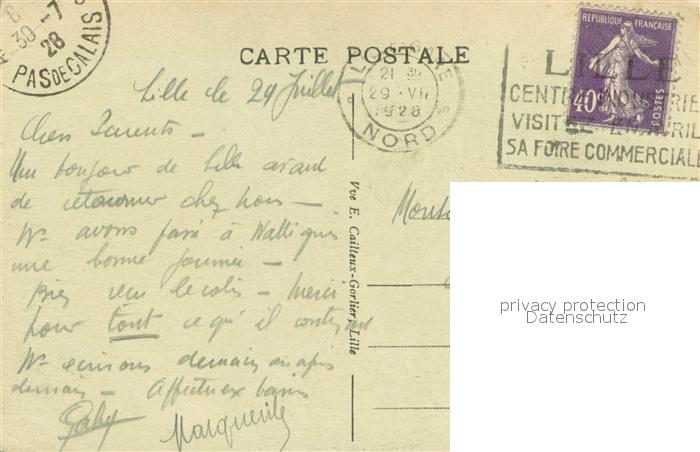 8
30-7
28
PAS DE CALAIS
CARTE POSTALE
LILLE GARE
21 30
29 · VII
1928
NORD
REPUBLIQUE FRANÇAISE
40c
POSTES
LILLE
CENTRE INDUSTRIEL
VISITEZ EN AVRIL
SA FOIRE COMMERCIALE
Lille le 29 Juillet
Chers Parents –
Un bonjour de Lille avant
de retourner chez nous –
Ns avons passé à Wattignies
une bonne journée –
Bien reçu le colis – Merci
pour tout ce qu'il contenait
Ns écrirons demain ou après
demain – Affectueux baisers
Gaby
Marguerite
Vve E. Cailteux-Gorlier, Lille
privacy protection
Datenschutz